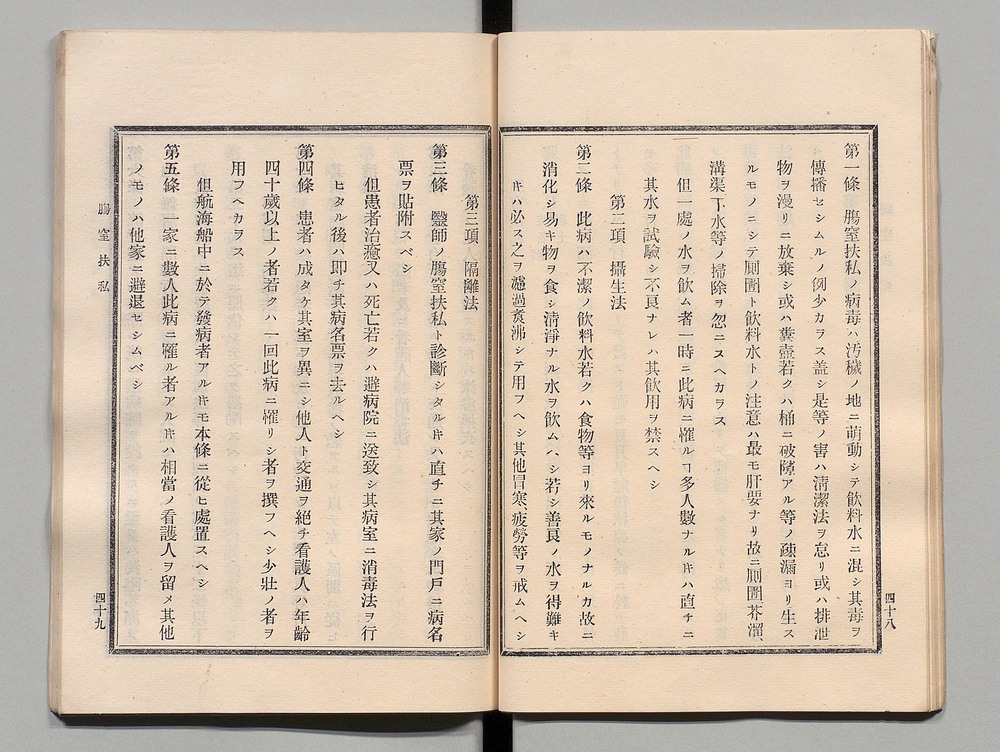 第一條　膓窒扶私ノ病毒ハ汚穢ノ地ニ萌動シテ飲料水ニ混シ其毒ヲ
傳播セシムルノ例少カヲス盖シ是等ノ害ハ清潔法ヲ怠リ或ハ排泄
物ヲ漫リニ放棄シ或ハ糞壺若クハ桶ニ破隙アル等ノ疎漏ヨリ生ス
ルモノニシテ厠圊ト飲料水トノ注意ハ最モ肝要ナリ故ニ厠圊芥溜、
溝渠下水等ノ掃除ヲ忽ニスヘカラス
但一處ノ水ヲ飲ム者一時ニ此病ニ罹ルヿ多人數ナルキハ直チニ
其水ヲ試驗シ不良ナレハ其飲用ヲ禁スヘシ
第二項　攝生法
第二條　此病ハ不潔ノ飲料水若クハ食物等ヨリ來ルモノナルカ故ニ
消化シ易キ物ヲ食シ清淨ナル水ヲ飲ムヘシ若シ善良ノ水ヲ得難キ
𪜈ハ必ス之ヲ濾過煑沸シテ用フヘシ其他冒寒、疲勞等ヲ戒ムヘシ
四十八
第三項　隔離法
第三條　醫師ノ膓窒扶私ト診斷シタル𪜈ハ直チニ其家ノ門戸ニ病名
票ヲ貼附スベシ
但患者治癒又ハ死亡若クハ避病院ニ送致シ其病室ニ消毒法ヲ行
ヒタル後ハ即チ其病名票ヲ去ルヘシ
第四條　患者ハ成タケ其室ヲ異ニシ他人ト交通ヲ絶チ看護人ハ年齡
四十歳以上ノ者若クハ一回此病ニ罹リシ者ヲ撰フヘシ少壯ノ者ヲ
用フヘカヲス
但航海船中ニ於テ發病者アルモ本條ニ從ヒ處置スヘシ
第五條　一家ニ數人此病ニ罹ル者アル𪜈ハ相當ノ看護人ヲ留メ其他
ノモノハ他家ニ避退セシムベシ
膓窒扶私
四十九